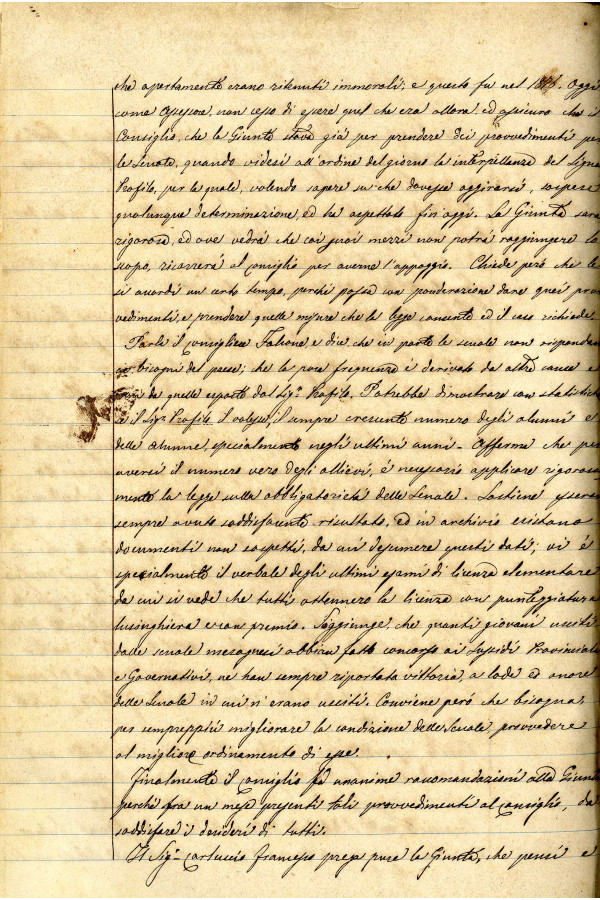 che apertamente erano ritenuti immorali; e questo fu nel 1876. Oggi
come Assessore, non cesso di essere quel che era allora, ed assicuro che il
Consiglio, che la Giunta stava già per prendere dei provvedimenti per
le Scuole, quando videsi all'ordine del giorno la interpellanza del Signor
Profilo, per la quale, volendo sapere su che dovesse aggirarsi, sospese
qualunque determinazione, ed ha aspettato fin oggi. La Giunta sarà
rigorosa, ed ove vedrà che coi suoi mezzi non potrà raggiungere lo
scopo, ricorrerà al Consiglio per averne l'appoggio. Chiede però che le
si accordi un certo tempo, perché possa con ponderazione dare quei prov
vedimenti, e prendere quelle misure che la legge consente ed il caso richiede
Parla il consigliere Falcone e dice che in parte le scuole non rispondano
ai bisogni del paese; che la poca frequenza è derivata da altre cause e
non da quelle esposte dal Sigr Profilo. Potrebbe dimostrare con statistiche
se il Sigr Profilo il volesse, il sempre crescente numero degli alunni e
delle alunne, specialmente negli ultimi anni - Afferma che per
aversi il numero vero degli allievi, è necessario applicare rigorosa
mente la legge sulla obbligatorietà delle Scuole. Sostiene essersi
sempre avuto soddisfacente risultato, ed in archivio esistono
documenti non sospetti, da cui desumere questi dati; vi è
specialmente il verbale degli ultimi esami di licenza elementare
da cui si vede che tutti ottennero la licenza con punteggiatura
lusinghiera e con premio. Soggiunge, che quanti giovani usciti
dalle scuole mesagnesi abbian fatto concorso ai sussidi Provinciali
e Governativi, ne han sempre riportata vittoria, a lode ed onore
delle Scuole in cui n'erano usciti. Conviene però che bisogna,
per semprepiù migliorare la condizione delle Scuole, provvedere
al migliore ordinamento di esse.
Finalmente il Consiglio fa unanime raccomandazioni alla Giunta
perché fra un mese presenti tali provvedimenti al Consiglio, da
soddisfare i desideri di tutti.
Il Sigr Carluccio Francesco prega pure la Giunta, che pensi e